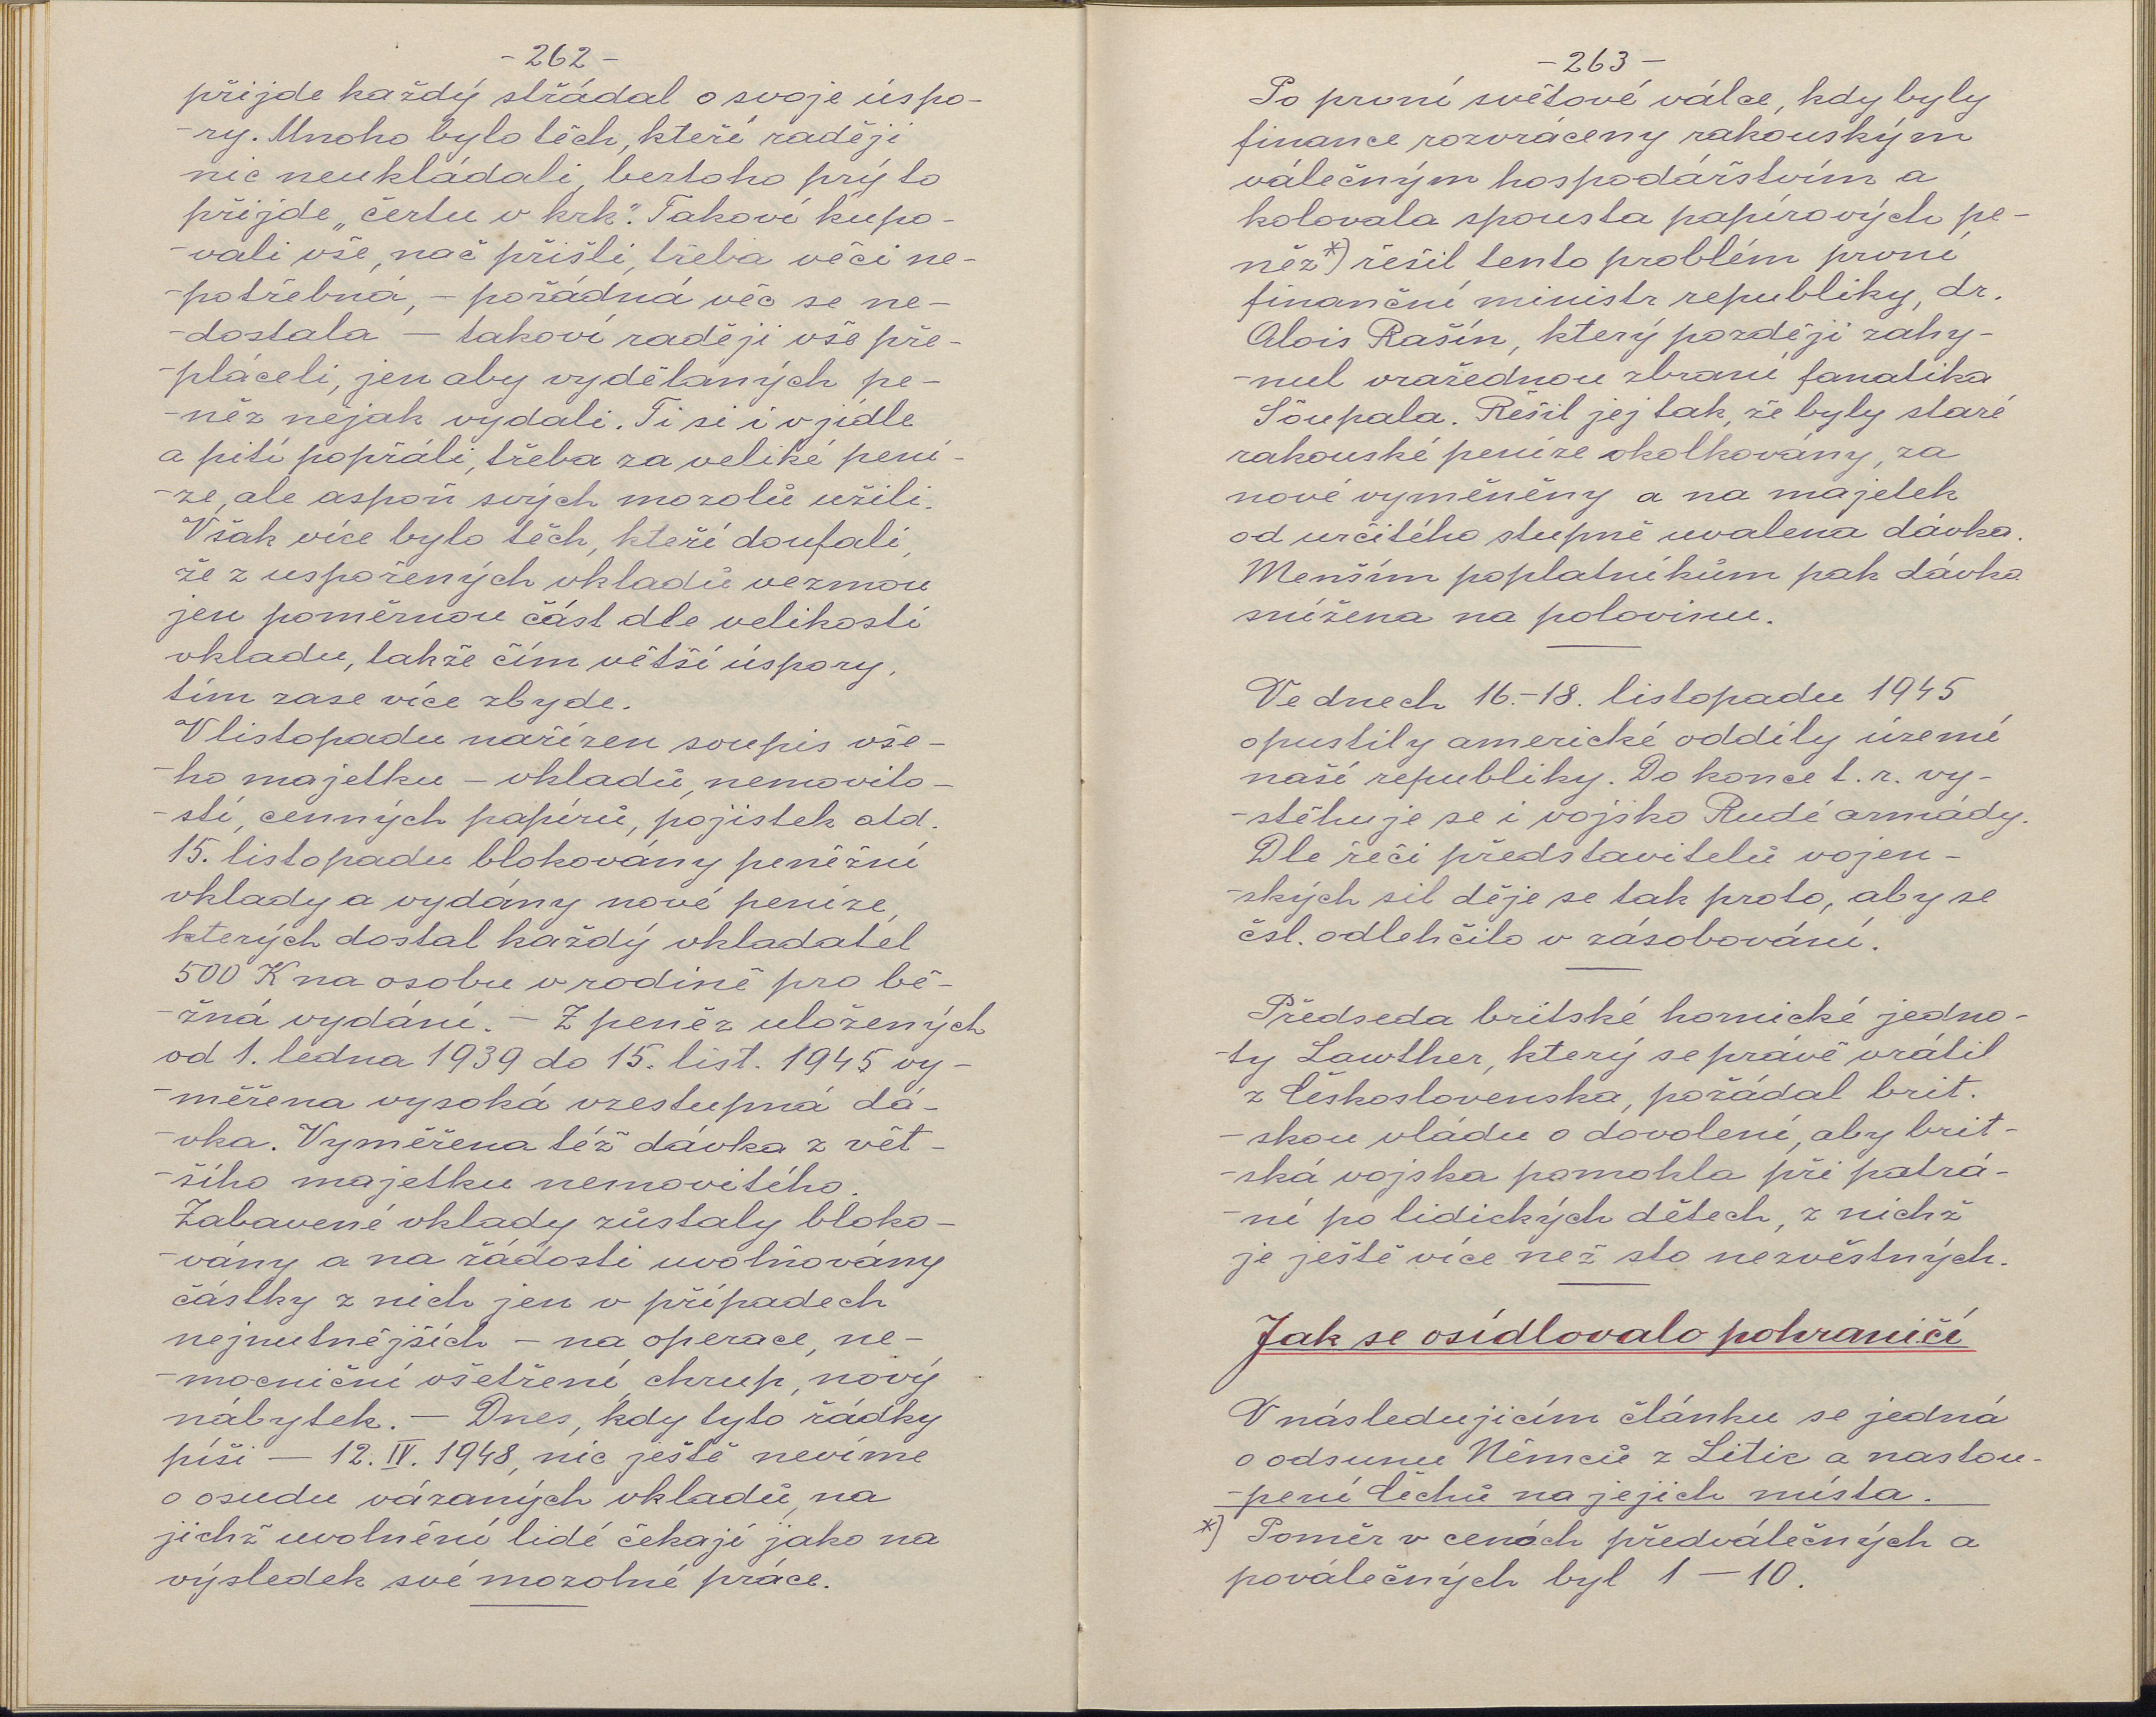 -262-
přijde každý střádal o svoje úspo-
-ry. Mnoho bylo těch, kteří raději
nic neukládali, beztoho prý to
přijde „čertu v krk". Takoví kupo-
-vali vše, nač přišli, třeba věci ne-
-potřebná, - pořádná věc se ne-
-dostala — takoví raději vše pře-
-pláceli, jen aby vydělaných pe-
-něz nějak vydali. Ti si i v jídle
a pití popřáli, třeba za veliké pení-
-ze, ale aspoň svých mozolů užili.
Však více bylo těch, kteří doufali,
že z uspořených vkladů vezmou
jen poměrnou část dle velikosti
vkladu, takže čím větší úspory,
tím zase více zbyde.
V listopadu nařízen soupis vše-
-ho majetku - vkladů, nemovito-
-stí, cenných papírů, pojistek atd.
15. listopadu blokovány peněžní
vklady a vydány nové peníze,
kterých dostal každý vkladatel
500 K na osobu v rodině pro bě-
-žná vydání. - Z peněz uložených
od 1. ledna 1939 do 15. list. 1945 vy-
-měřena vysoká vzestupná dá-
-vka. Vyměřena též dávka z vět-
-šího majetku nemovitého.
Zabavené vklady zůstaly bloko-
-vány a na žádosti uvolňovány
částky z nich jen v případech
nejnutnějších - na operace, ne-
-mocniční ošetření, chrup, nový
nábytek. — Dnes, kdy tyto řádky
píši — 12. IV. 1948, nic ještě nevíme
o osudu vázaných vkladů, na
jichž uvolnění lidé čekají jako na
výsledek své mozolné práce.
-263-
Po první světové válce, kdy byly
finance rozvráceny rakouským
válečným hospodářstvím a
kolovala spousta papírových pe-
něz*) řešil tento problém první
finanční ministr republiky, dr.
Alois Rašín, který později zahy-
-nul vražednou zbraní fanatika
Šoupala. Řešil jej tak, že byly staré
rakouské peníze okolkovány, za
nové vyměněny a na majetek
od určitého stupně uvalena dávka.
Menším poplatníkům pak dávka
snížena na polovinu.
Ve dnech 16.-18. listopadu 1945
opustily americké oddíly území
naší republiky. Do konce t. r. vy-
-stěhuje se i vojsko Rudé armády.
Dle řeči představitelů vojen-
-ských sil děje se tak proto, aby se
čsl. odlehčilo v zásobování.
Předseda britské hornické jedno-
-ty Lawther, který se právě vrátil
z Československa, požádal brit.
-skou vládu o dovolení, aby brit-
-ská vojska pomohla při patrá-
-ní po lidických dětech, z nichž
je ještě více než sto nezvěstných.
Jak se osídlovalo pohraničí
V následujicím článku se jedná
o odsunu Němců z Litic a nastou-
-pení Čechů na jejich místa.
*) Poměr v cenách předválečných a
poválečných byl 1 — 10.